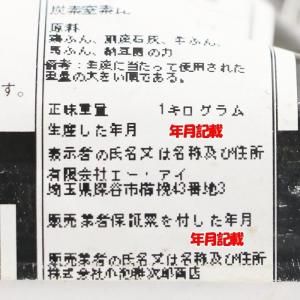 炭素窒素比
原料
鶏ふん、副産石灰、牛ふん、
馬ふん、納豆菌の力
備考：生産に当たって使用された
重量の大きい順である。
す。
正味重量　1キログラム
生産した年月　年月記載
表示者の氏名又は名称及び住所
有限会社エー・アイ
埼玉県深谷市櫛挽43番地3
販売業者保証票を付した年月
年月記載
販売業者の氏名又は名称及び住所